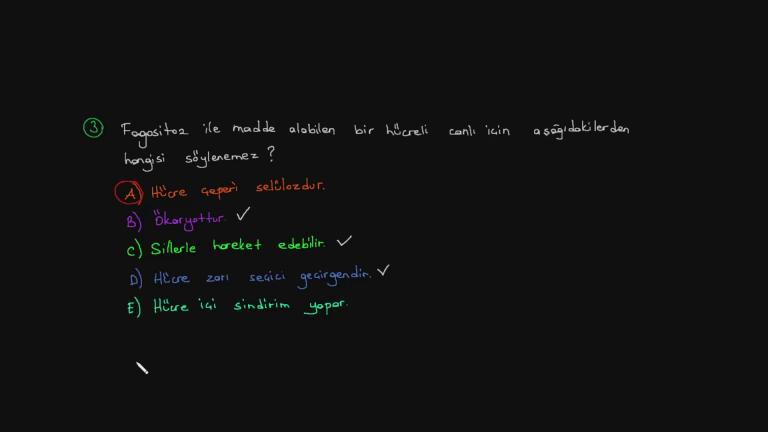 3 Fagositoz ile madde alabilen bir hücreli canlı için aşağıdakilerden
hangisi söylenemez?
A) Hücre çeperi selülozdur.
B) Ökaryottur.
C) Sillerle hareket edebilir.
D) Hücre zarı seçici geçirgendir.
E) Hücre içi sindirim yapar.